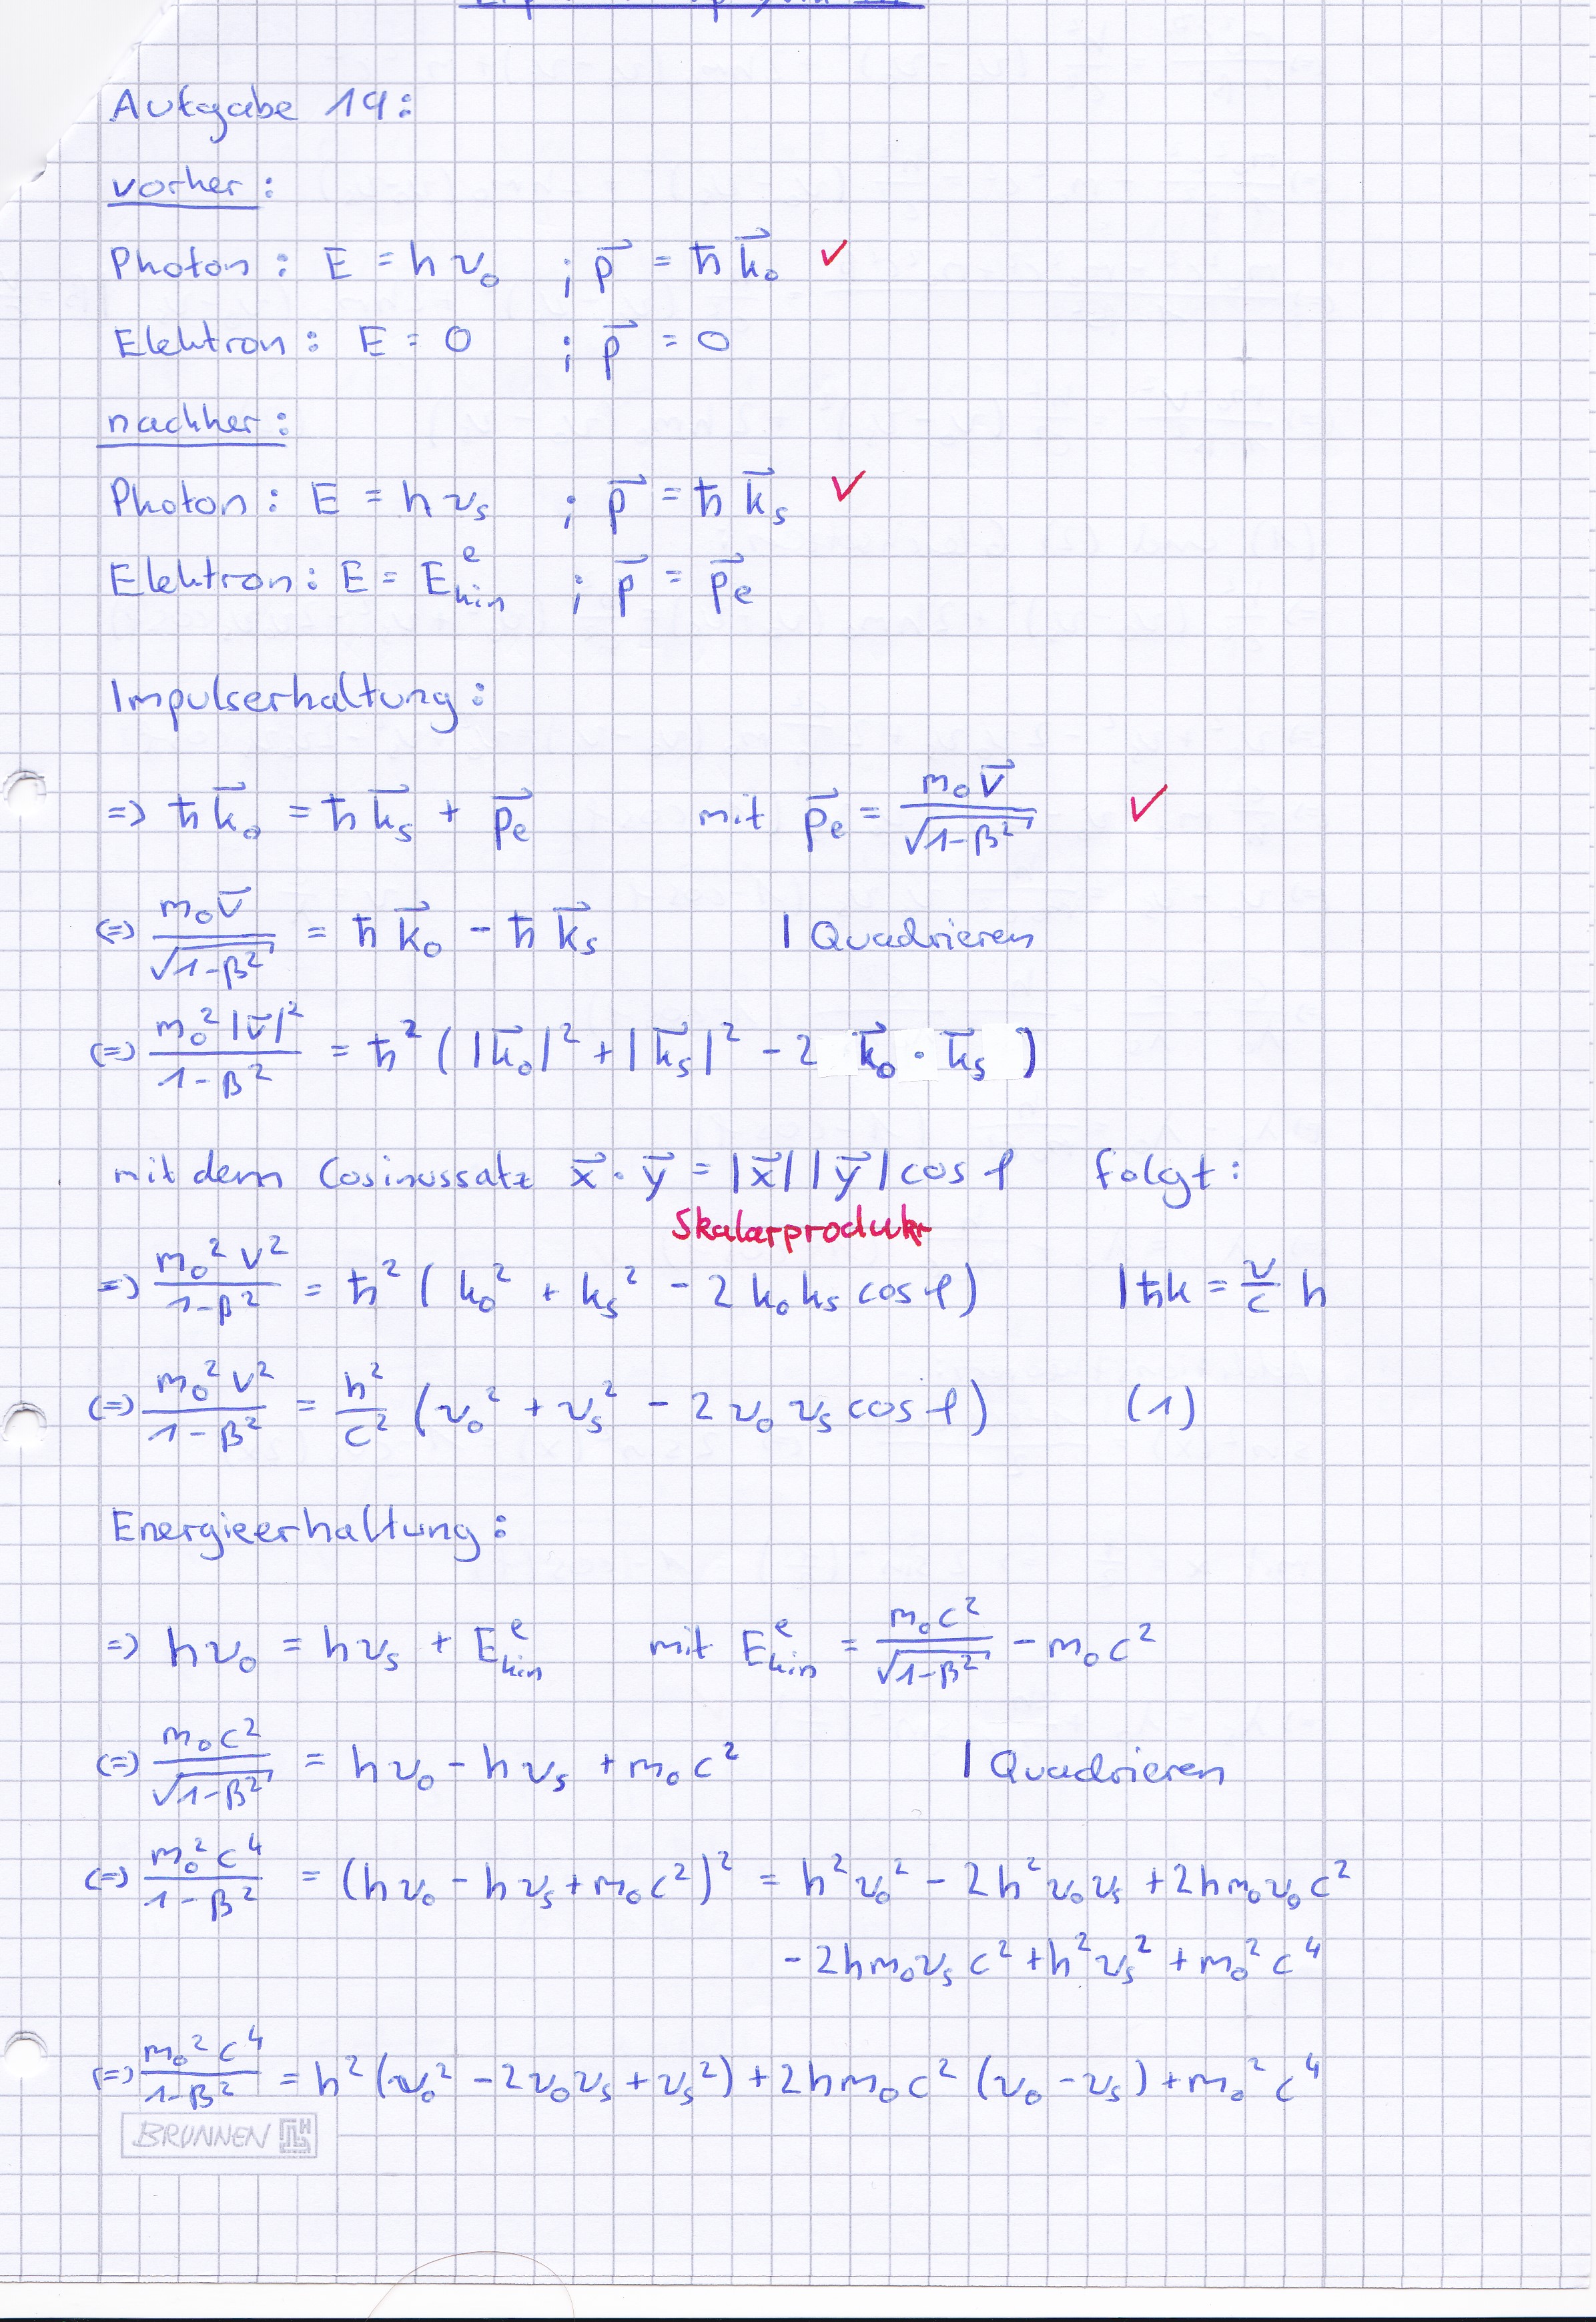 Aufgabe 19:
vorher:
Photon: E = hν₀ ; p⃗ = ħk⃗₀ ✓
Elektron: E = 0 ; p⃗ = 0
nachher:
Photon: E = hνₛ ; p⃗ = ħk⃗ₛ ✓
Elektron: E = E^e_kin ; p⃗ = p⃗ₑ
Impulserhaltung:
=> ħk⃗₀ = ħk⃗ₛ + p⃗ₑ mit p⃗ₑ = m₀v⃗ / √(1-β²) ✓
(=) m₀v⃗ / √(1-β²) = ħk⃗₀ - ħk⃗ₛ | Quadrieren
(=) m₀²|v⃗|² / (1-β²) = ħ² (|k⃗₀|² + |k⃗ₛ|² - 2 k⃗₀ · k⃗ₛ)
mit dem Cosinussatz x⃗ · y⃗ = |x⃗| |y⃗| cos φ folgt:
Skalarprodukt
=> m₀²v² / (1-β²) = ħ² (k₀² + kₛ² - 2k₀kₛ cos φ) | ħk = ν/c h
(=) m₀²v² / (1-β²) = h²/c² (ν₀² + νₛ² - 2ν₀νₛ cos φ) (1)
Energieerhaltung:
=> hν₀ = hνₛ + E^e_kin mit E^e_kin = m₀c² / √(1-β²) - m₀c²
(=) m₀c² / √(1-β²) = hν₀ - hνₛ + m₀c² | Quadrieren
(=) m₀²c⁴ / (1-β²) = (hν₀ - hνₛ + m₀c²)² = h²ν₀² - 2h²ν₀νₛ + 2hm₀ν₀c²
- 2hm₀νₛc² + h²νₛ² + m₀²c⁴
(=) m₀²c⁴ / (1-β²) = h² (ν₀² - 2ν₀νₛ + νₛ²) + 2hm₀c² (ν₀ - νₛ) + m₀²c⁴
BRUNNEN